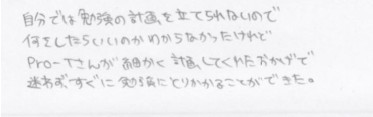 自分では勉強の計画を立てられないので
何をしたらいいのかわからなかったけれど
Pro-Tさんが細かく計画してくれたおかげで
迷わず、すぐに勉強にとりかかることができた。